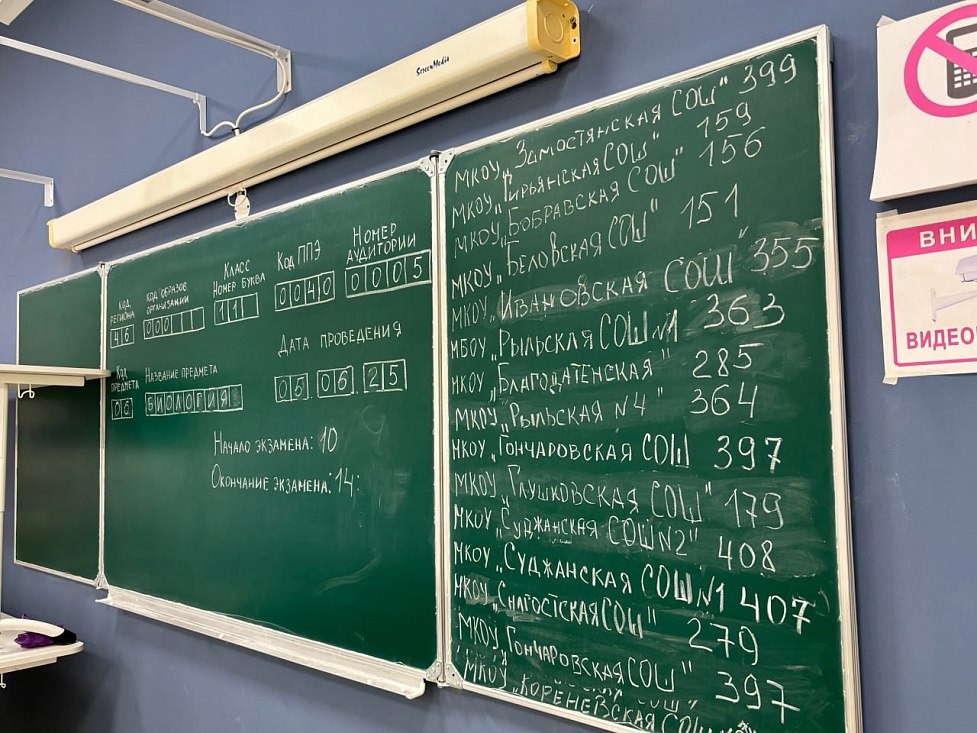 ScreenMedia
КОД РЕГИОНА
46
КОД ОБРАЗОВ. ОРГАНИЗАЦИИ
000
КЛАСС
НОМЕР БУКВА
11
КОД ППЭ
0040
НОМЕР АУДИТОРИИ
0005
КОД ПРЕДМЕТА
06
НАЗВАНИЕ ПРЕДМЕТА
БИОЛОГИЯ
ДАТА ПРОВЕДЕНИЯ
05.06.25
НАЧАЛО ЭКЗАМЕНА: 10
ОКОНЧАНИЕ ЭКЗАМЕНА: 14:
МКОУ „Замостянская СОШ" 399
МКОУ „Гирьянская СОШ" 159
МКОУ „Бобравская СОШ" 156
МКОУ „Беловская СОШ" 151
МКОУ „Ивановская СОШ" 355
МБОУ „Рыльская СОШ N1 363
МКОУ „Благодатенская" 285
МКОУ „Рыльская N4" 364
МКОУ „Гончаровская СОШ 397
МКОУ „Глушковская СОШ" 179
МКОУ „Суджанская СОШ N2" 408
МКОУ „Суджанская СОШ N1 407
МКОУ „Снагостская СОШ" 279
МКОУ „Гончаровская СОШ" 397
МКОУ „Кореневская СОШ
ВНИ
ВИДЕО